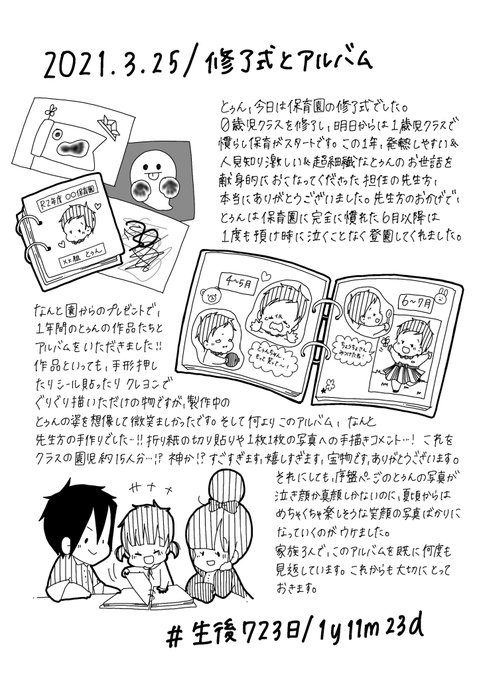 2021.3.25/修了式とアルバム
とぅん、今日は保育園の修了式でした。
0歳児クラスを修了し、明日からは1歳児クラスで
慣らし保育がスタートです。この1年、発熱しやすい&
人見知り激しい&超繊細なとぅんのお世話を
献身的におこなってくださった担任の先生方、
本当にありがとうございました。先生方のおかげで、
とぅんは保育園に完全に慣れた6月以降は
1度も預け時に泣くことなく登園してくれました。
R2年度 〇〇保育園
××組 とぅん
4〜5月
6〜7月
なんと園からのプレゼントで、
1年間のとぅんの作品たちと
アルバムをいただきました!!
作品といっても、手形押し
たりシール貼ったりクレヨンで
ぐりぐり描いただけの物ですが、製作中の
とぅんの姿を想像して微笑ましかったです。そして何よりこのアルバム、なんと
先生方の手作りでしたー!!折り紙の切り貼りや1枚1枚の写真への手描きコメント…!これを
クラスの園児約15人分…!?神か!?すごすぎます、嬉しすぎます、宝物です、ありがとうございます。
それにしても、序盤ページのとぅんの写真が
泣き顔か真顔しかないのに、夏頃からは
めちゃくちゃ楽しそうな笑顔の写真ばかりに
なっていくのがウケました。
家族3人で、このアルバムを既に何度も
見返しています。これからも大切にとって
おきます。
#生後723日/1y11m23d